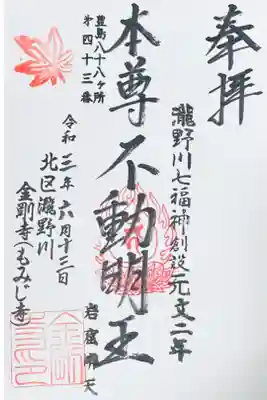 奉拝
瀧野川七福神創設元文二年
本尊不動明王
岩窟弁天
豊島八十八ヶ所
第四十三番
令和三年六月十三日
北区瀧野川
金剛寺(もみじ寺)